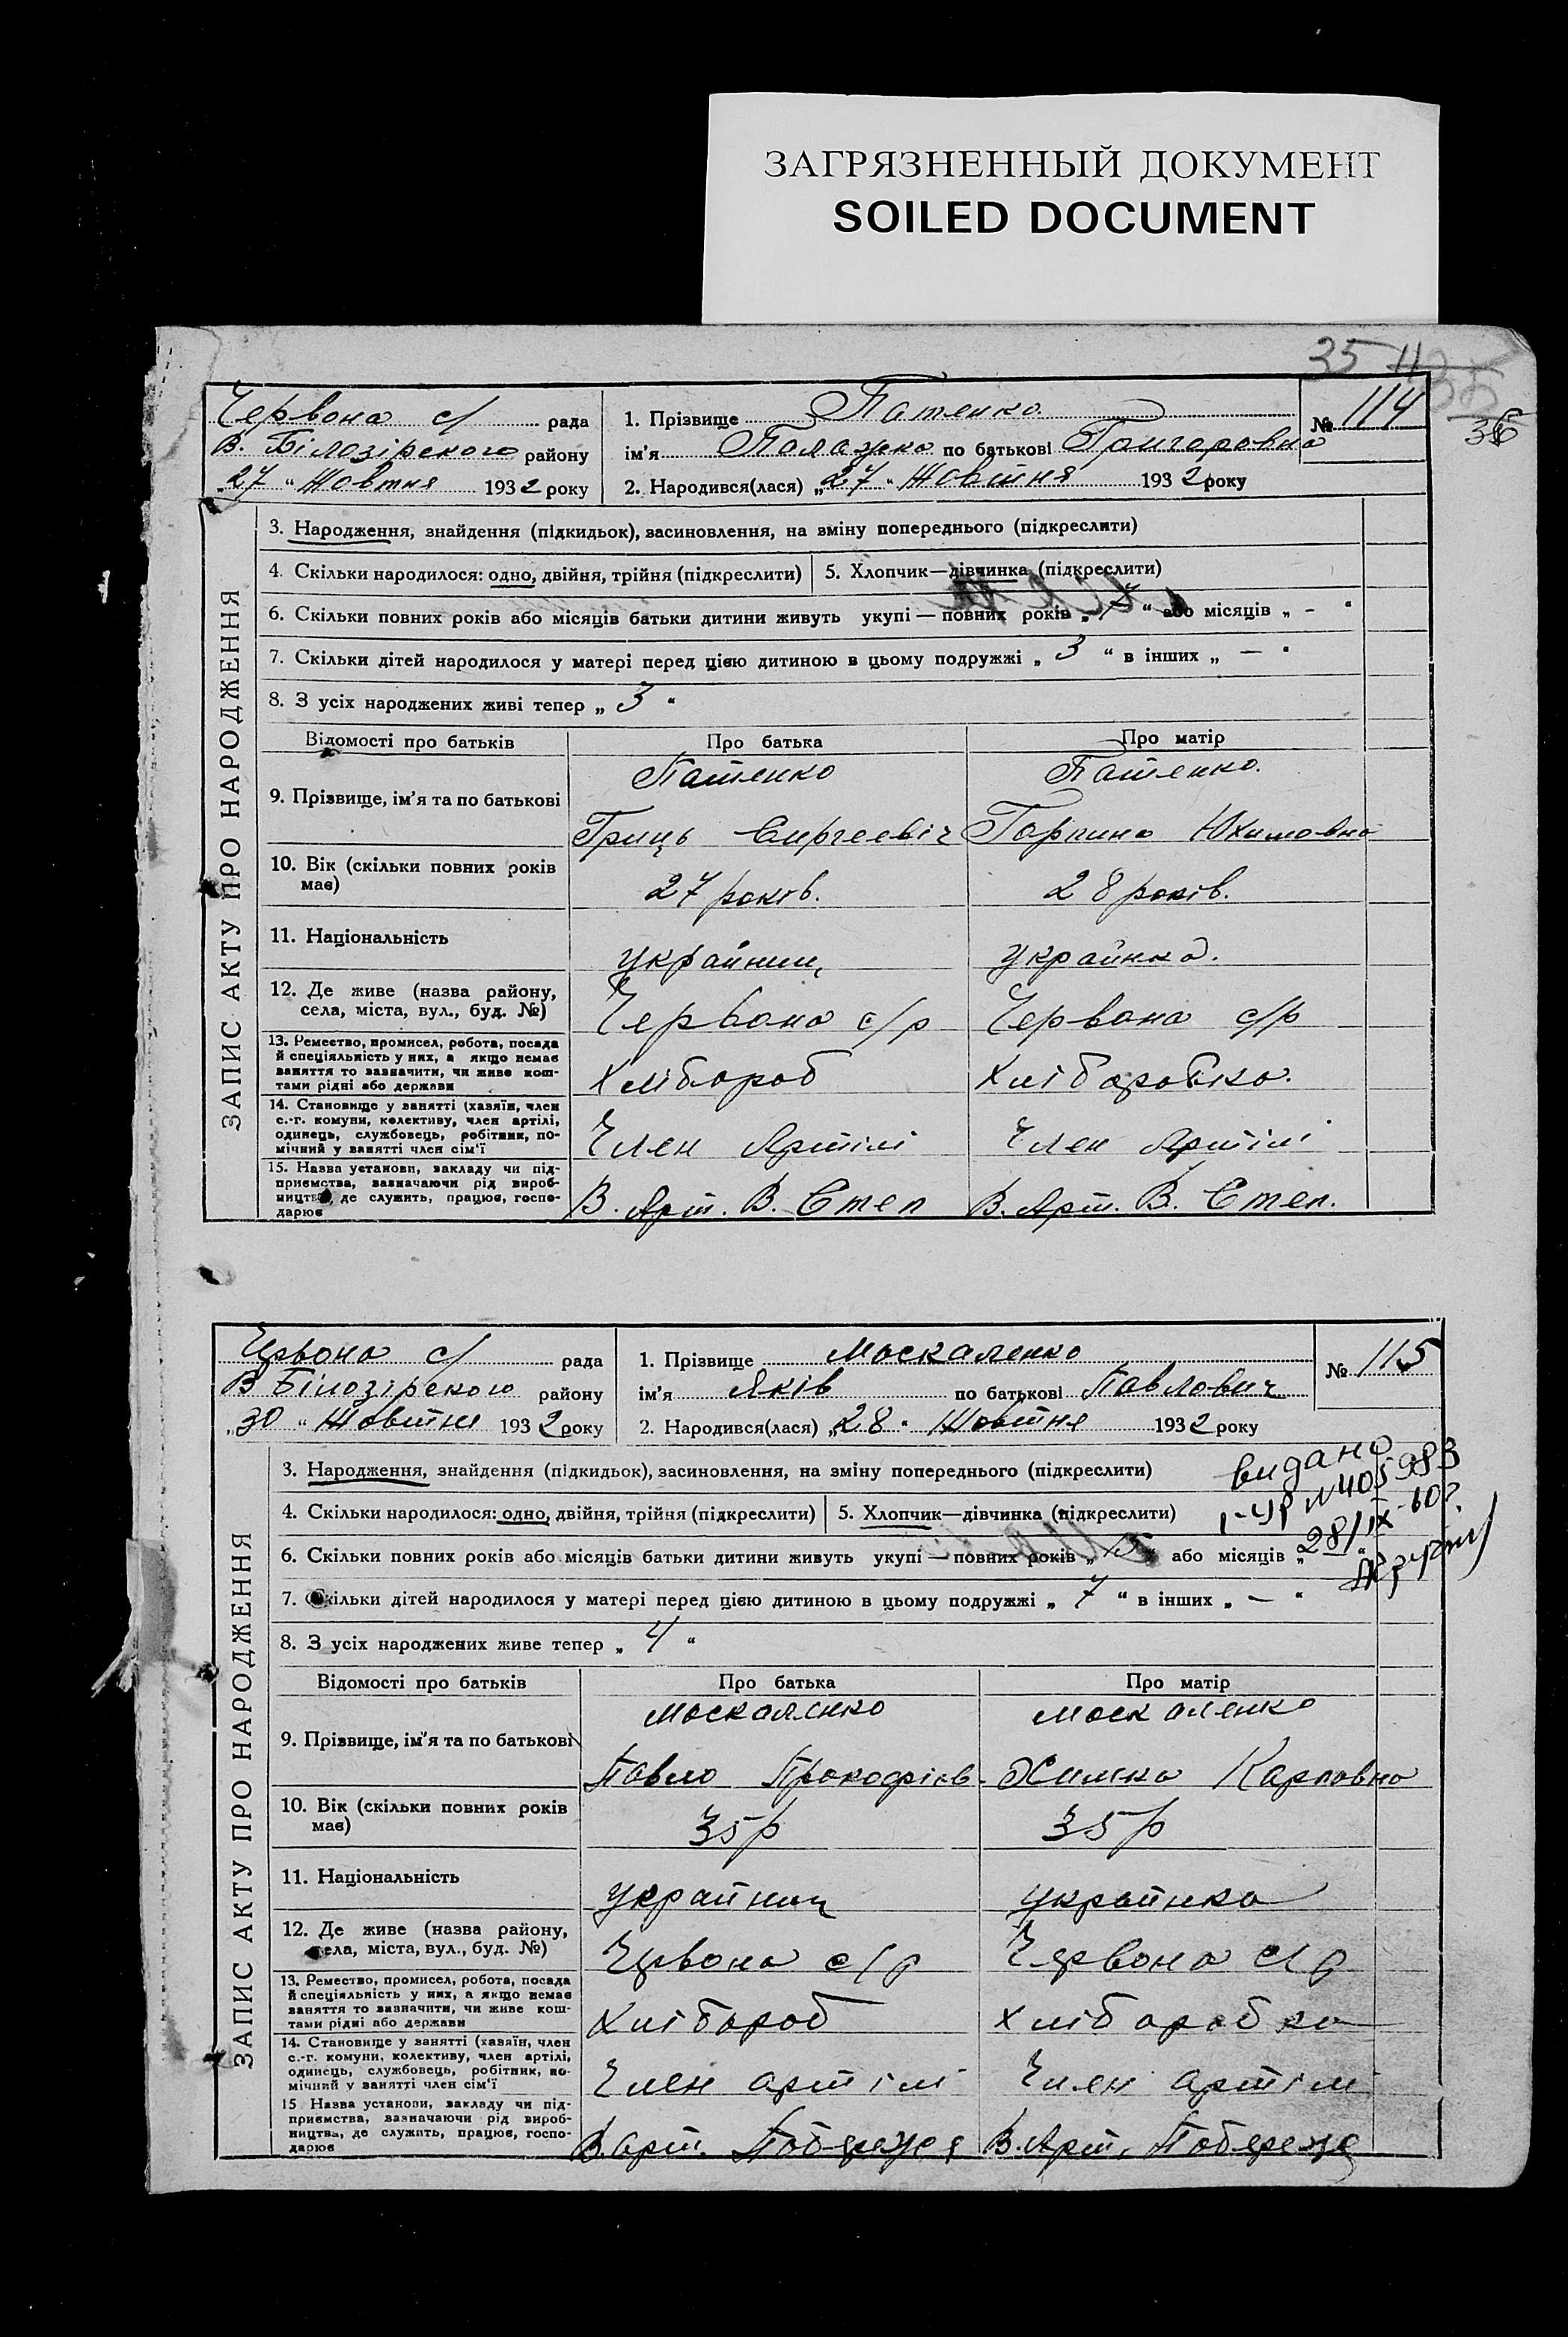 ЗАГРЯЗНЕННЫЙ ДОКУМЕНТ
SOILED DOCUMENT
35
36
Червона с/ рада
В. Білозірского району
„27" Жовтня 1932 року
1. Прізвище Патенко
ім'я Палажка по батькові Григоровна
2. Народився(лася) „27" Жовтня 1932 року
№ 114
ЗАПИС АКТУ ПРО НАРОДЖЕННЯ
3. Народження, знайдення (підкидьок), засиновлення, на зміну попереднього (підкреслити)
4. Скільки народилося: одно, двійня, трійня (підкреслити)
5. Хлопчик—дівчинка (підкреслити)
6. Скільки повних років або місяців батьки дитини живуть укупі — повних років „7" або місяців „ - "
7. Скільки дітей народилося у матері перед цією дитиною в цьому подружжі „3" в інших „ — "
8. З усіх народжених живі тепер „3"
Відомості про батьків
Про батька
Про матір
9. Прізвище, ім'я та по батькові
Патенко
Гриць Сиргеевіч
Патенко.
Горпина Юхимовна
10. Вік (скільки повних років має)
27 років.
28 років.
11. Національність
українець
українка.
12. Де живе (назва району, села, міста, вул., буд. №)
Червона с/р
Червона с/р
13. Ремество, промисел, робота, посада й спеціяльність у них, а якщо немає заняття то зазначити, чи живе коштами рідні або держави
Хлібороб
Хліборобка.
14. Становище у занятті (хазяїн, член с.-г. комуни, колективу, член артілі, одинець, службовець, робітник, помічний у занятті член сім'ї
Член Артілі
Член Артілі
15. Назва установи, закладу чи підприємства, зазначаючи рід виробництва, де служить, працює, господарює
В. Арт. В. Степ
В. Арт. В. Степ.
Црвона с/ рада
В Білозірского району
„30" Жовтня 1932 року
1. Прізвище Москаленко
ім'я Яків по батькові Павлович
2. Народився(лася) „28" Жовтня 1932 року
№ 115
видано
I-УР №405983
28/IX-60г.
ЗАПИС АКТУ ПРО НАРОДЖЕННЯ
3. Народження, знайдення (підкидьок), засиновлення, на зміну попереднього (підкреслити)
4. Скільки народилося: одно, двійня, трійня (підкреслити)
5. Хлопчик—дівчинка (підкреслити)
6. Скільки повних років або місяців батьки дитини живуть укупі — повних років „15" або місяців „ "
7. Скільки дітей народилося у матері перед цією дитиною в цьому подружжі „7" в інших „ — "
8. З усіх народжених живе тепер „4"
Відомості про батьків
Про батька
Про матір
9. Прізвище, ім'я та по батькові
Москаленко
Павло Прокофієв.
Москаленко
Химка Карповна
10. Вік (скільки повних років має)
35 р
35 р
11. Національність
українец
українка
12. Де живе (назва району, села, міста, вул., буд. №)
Црвона с/р
Червона с/р
13. Ремество, промисел, робота, посада й спеціяльність у них, а якщо немає заняття то зазначити, чи живе коштами рідні або держави
Хлібороб
Хліборобка
14. Становище у занятті (хазяїн, член с.-г. комуни, колективу, член артілі, одинець, службовець, робітник, помічний у занятті член сім'ї
Член артілі
Член артілі
15 Назва установи, закладу чи підприємства, зазначаючи рід виробництва, де служить, працює, господарює
В. арт. Побережя
В. Арт. Побереж